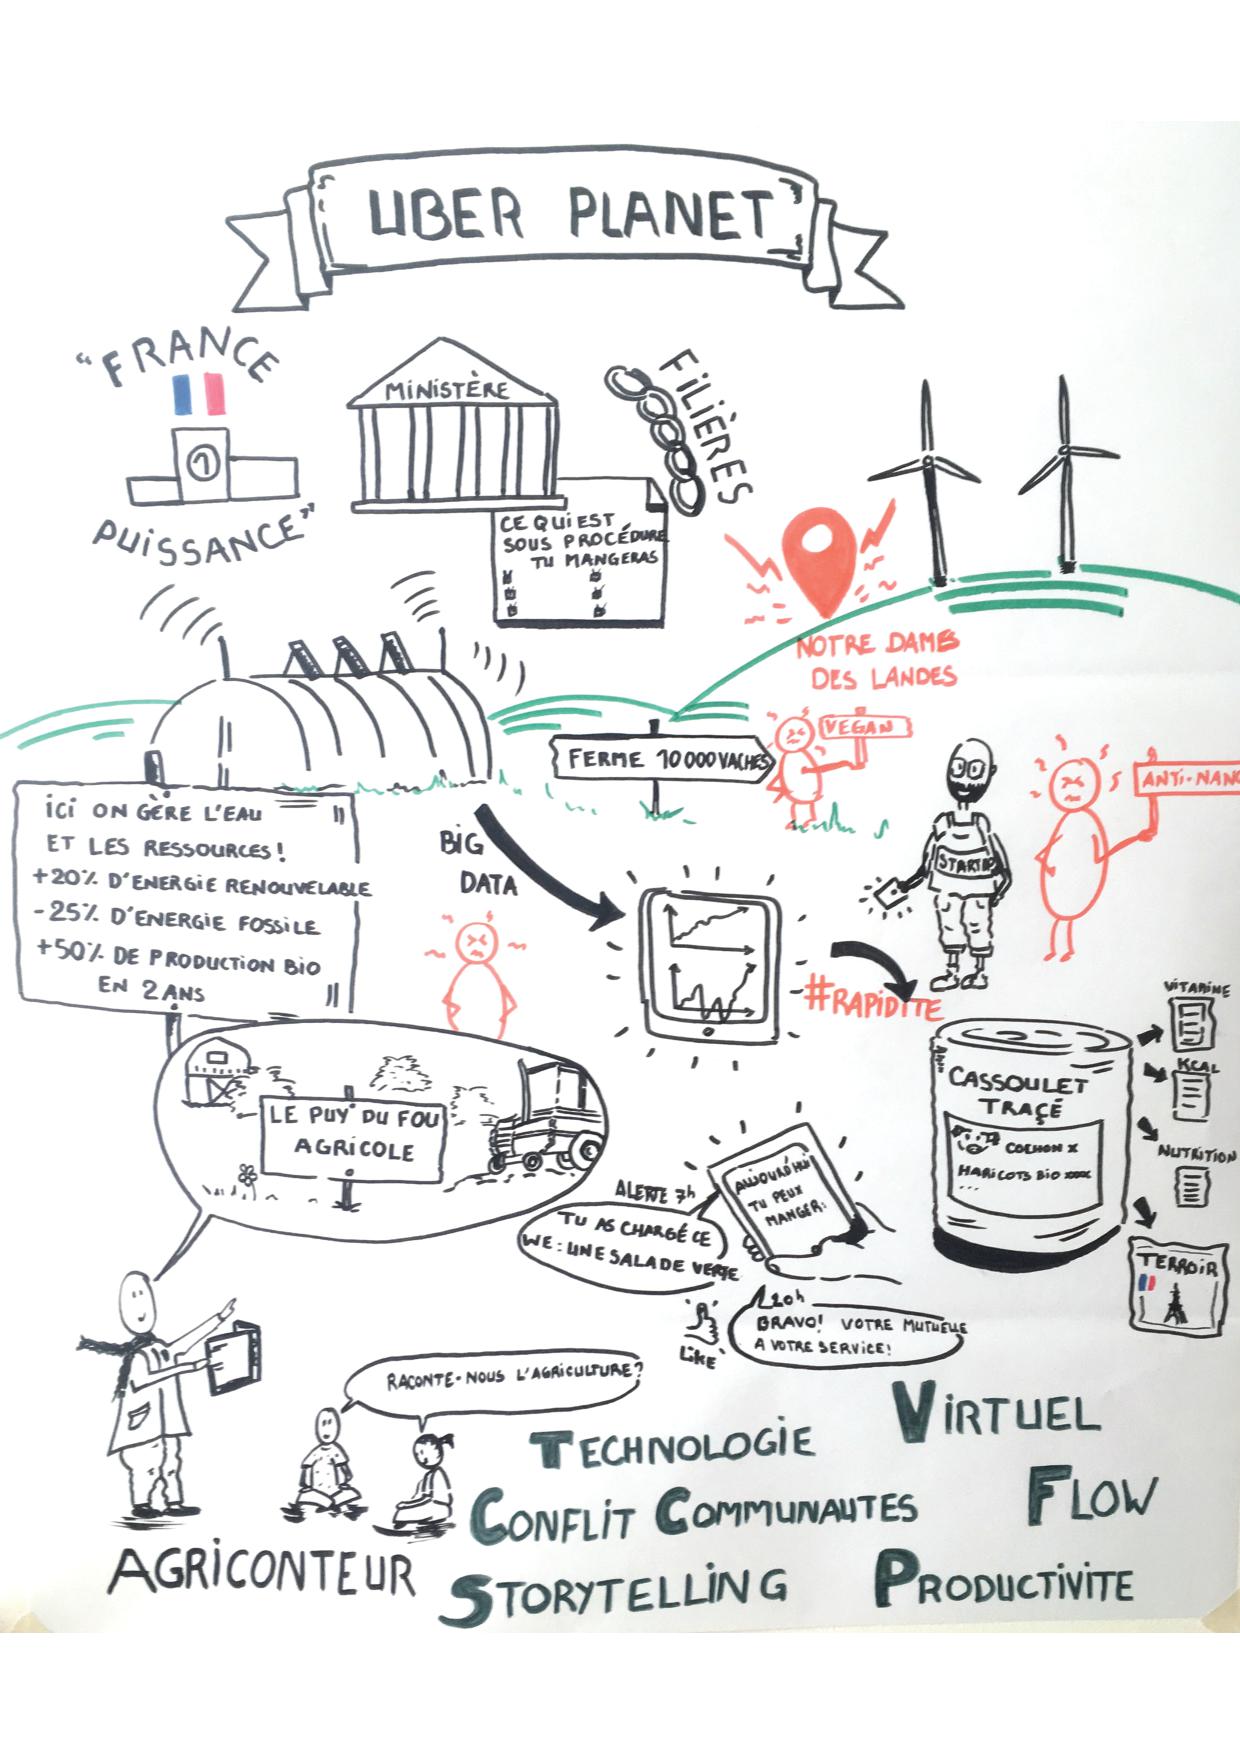 UBER PLANET
"FRANCE
1
PUISSANCE"
MINISTÈRE
FILIÈRES
CE QUI EST
SOUS PROCÉDURE
TU MANGERAS
NOTRE DAMES
DES LANDES
FERME 10 000 VACHES
VEGAN
ANTI-NANO
STARTUP
ICI ON GÈRE L'EAU
ET LES RESSOURCES!
+20% D'ENERGIE RENOUVELABLE
-25% D'ENERGIE FOSSILE
+50% DE PRODUCTION BIO
EN 2 ANS
BIG
DATA
#RAPIDITE
VITAMINE
KCAL
NUTRITION
TERROIR
CASSOULET
TRAÇÉ
COCHON X
HARICOTS BIO XXXX
...
LE PUY DU FOU
AGRICOLE
ALERTE 7h
TU AS CHARGÉ CE
WE: UNE SALADE VERTE
AUJOURD'HUI
TU PEUX
MANGER:
20h
BRAVO! VOTRE MUTUELLE
A VOTRE SERVICE!
LIKE
RACONTE-NOUS L'AGRICULTURE?
AGRICONTEUR
TECHNOLOGIE
VIRTUEL
CONFLIT
COMMUNAUTES
FLOW
STORYTELLING
PRODUCTIVITE